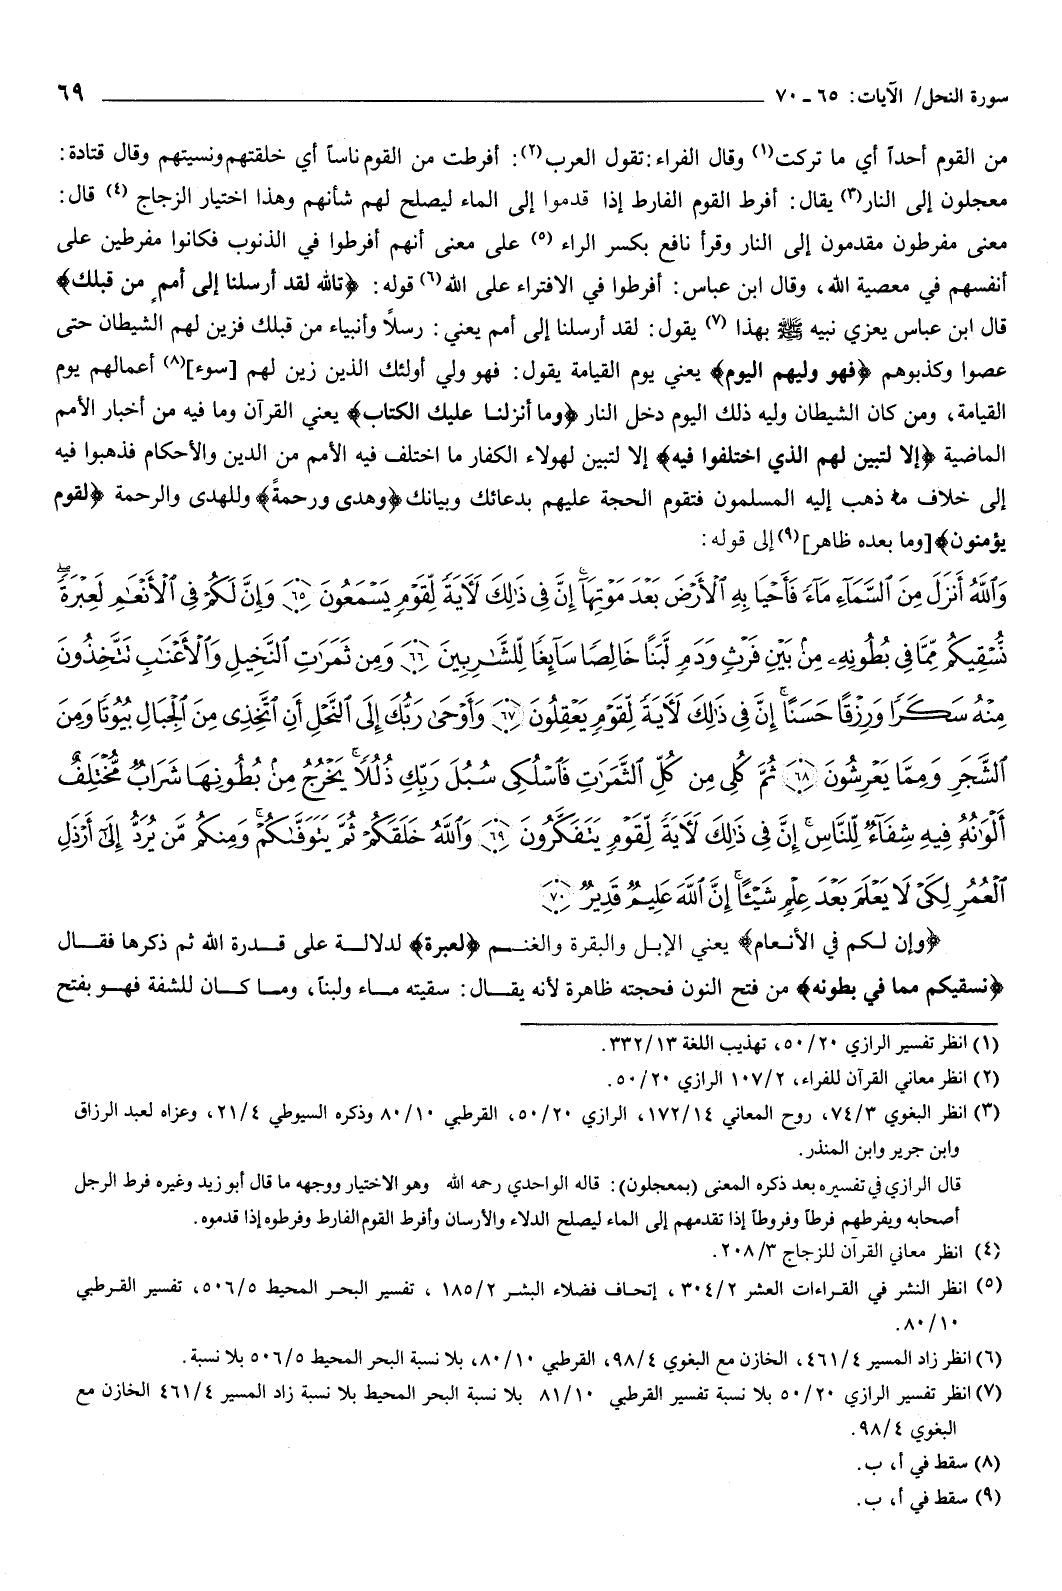 سورة النحل/ الآيات: ٦٥ ـ ٧٠
٦٩
من القوم أحداً أي ما تركت(١) وقال الفراء: تقول العرب(٢): أفرطت من القوم ناساً أي خلقتهم ونسيتهم وقال قتادة:
معجلون إلى النار(٣) يقال: أفرط القوم الفارط إذا قدموا إلى الماء ليصلح لهم شأنهم وهذا اختيار الزجاج (٤) قال:
معنى مفرطون مقدمون إلى النار وقرأ نافع بكسر الراء (٥) على معنى أنهم أفرطوا في الذنوب فكانوا مفرطين على
أنفسهم في معصية الله، وقال ابن عباس: أفرطوا في الافتراء على الله(٦) قوله: ﴿تالله لقد أرسلنا إلى أممٍ من قبلك﴾
قال ابن عباس يعزي نبيه ﷺ بهذا (٧) يقول: لقد أرسلنا إلى أمم يعني: رسلاً وأنبياء من قبلك فزين لهم الشيطان حتى
عصوا وكذبوهم ﴿فهو وليهم اليوم﴾ يعني يوم القيامة يقول: فهو ولي أولئك الذين زين لهم [سوء](٨) أعمالهم يوم
القيامة، ومن كان الشيطان وليه ذلك اليوم دخل النار ﴿وما أنزلنا عليك الكتاب﴾ يعني القرآن وما فيه من أخبار الأمم
الماضية ﴿إلا لتبين لهم الذي اختلفوا فيه﴾ إلا لتبين لهولاء الكفار ما اختلف فيه الأمم من الدين والأحكام فذهبوا فيه
إلى خلاف ما ذهب إليه المسلمون فتقوم الحجة عليهم بدعائك وبيانك ﴿وهدى ورحمةً﴾ وللهدى والرحمة ﴿لقوم
يؤمنون﴾ [وما بعده ظاهر](٩) إلى قوله:
وَٱللَّهُ أَنزَلَ مِنَ ٱلسَّمَآءِ مَآءً فَأَحْيَا بِهِ ٱلْأَرْضَ بَعْدَ مَوْتِهَآ إِنَّ فِى ذَٰلِكَ لَأَيَةً لِّقَوْمٍ يَسْمَعُونَ ﴿٦٥﴾ وَإِنَّ لَكُمْ فِى ٱلْأَنْعَٰمِ لَعِبْرَةً ۖ
نُّسْقِيكُم مِّمَّا فِى بُطُونِهِۦ مِنۢ بَيْنِ فَرْثٍ وَدَمٍ لَّبَنًا خَالِصًا سَآئِغًا لِّلشَّٰرِبِينَ ﴿٦٦﴾ وَمِن ثَمَرَٰتِ ٱلنَّخِيلِ وَٱلْأَعْنَٰبِ نَتَّخِذُونَ
مِنْهُ سَكَرًا وَرِزْقًا حَسَنًا ۗ إِنَّ فِى ذَٰلِكَ لَأَيَةً لِّقَوْمٍ يَعْقِلُونَ ﴿٦٧﴾ وَأَوْحَىٰ رَبُّكَ إِلَى ٱلنَّحْلِ أَنِ ٱتَّخِذِى مِنَ ٱلْجِبَالِ بُيُوتًا وَمِنَ
ٱلشَّجَرِ وَمِمَّا يَعْرِشُونَ ﴿٦٨﴾ ثُمَّ كُلِى مِن كُلِّ ٱلثَّمَرَٰتِ فَٱسْلُكِى سُبُلَ رَبِّكِ ذُلُلًا ۚ يَخْرُجُ مِنۢ بُطُونِهَا شَرَابٌ مُّخْتَلِفٌ
أَلْوَٰنُهُۥ فِيهِ شِفَآءٌ لِّلنَّاسِ ۗ إِنَّ فِى ذَٰلِكَ لَأَيَةً لِّقَوْمٍ يَتَفَكَّرُونَ ﴿٦٩﴾ وَٱللَّهُ خَلَقَكُمْ ثُمَّ يَتَوَفَّىٰكُمْ ۚ وَمِنكُم مَّن يُرَدُّ إِلَىٰٓ أَرْذَلِ
ٱلْعُمُرِ لِكَىْ لَا يَعْلَمَ بَعْدَ عِلْمٍ شَيْـًٔا ۚ إِنَّ ٱللَّهَ عَلِيمٌ قَدِيرٌ ﴿٧٠﴾
﴿وإن لكم في الأنعام﴾ يعني الإبل والبقرة والغنم ﴿لعبرة﴾ لدلالة على قدرة الله ثم ذكرها فقال
﴿نسقيكم مما في بطونه﴾ من فتح النون فحجته ظاهرة لأنه يقال: سقيته ماء ولبناً، وما كان للشفة فهو بفتح
(١) انظر تفسير الرازي ٢٠/ ٥٠، تهذيب اللغة ١٣/ ٣٣٢.
(٢) انظر معاني القرآن للفراء، ٢/ ١٠٧ الرازي ٢٠/ ٥٠.
(٣) انظر البغوي ٣/ ٧٤، روح المعاني ١٤/ ١٧٢، الرازي ٢٠/ ٥٠، القرطبي ١٠/ ٨٠ وذكره السيوطي ٤/ ٢١، وعزاه لعبد الرزاق
وابن جرير وابن المنذر.
قال الرازي في تفسيره بعد ذكره المعنى (بمعجلون): قاله الواحدي رحمه الله وهو الاختيار ووجهه ما قال أبو زيد وغيره فرط الرجل
أصحابه ويفرطهم فرطاً وفروطاً إذا تقدمهم إلى الماء ليصلح الدلاء والأرسان وأفرط القوم الفارط وفرطوه إذا قدموه.
(٤) انظر معاني القرآن للزجاج ٣/ ٢٠٨.
(٥) انظر النشر في القراءات العشر ٢/ ٣٠٤ ، إتحاف فضلاء البشر ٢/ ١٨٥ ، تفسير البحر المحيط ٥/ ٥٠٦، تفسير القرطبي
١٠/ ٨٠.
(٦) انظر زاد المسير ٤/ ٤٦١، الخازن مع البغوي ٤/ ٩٨، القرطبي ١٠/ ٨٠، بلا نسبة البحر المحيط ٥/ ٥٠٦ بلا نسبة.
(٧) انظر تفسير الرازي ٢٠/ ٥٠ بلا نسبة تفسير القرطبي ١٠/ ٨١ بلا نسبة البحر المحيط بلا نسبة زاد المسير ٤/ ٤٦١ الخازن مع
البغوي ٤/ ٩٨.
(٨) سقط في أ، ب.
(٩) سقط في أ، ب.